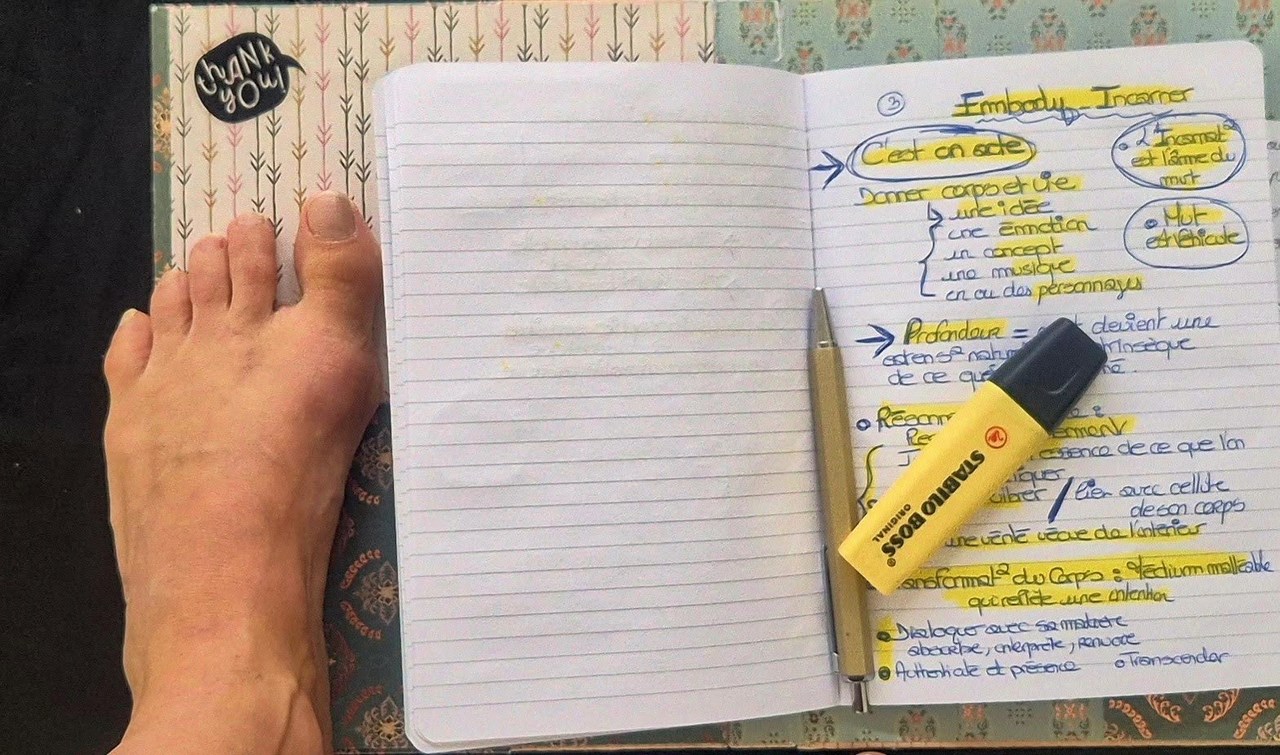 thANK
yOU!
3
Embody - Incarner
C'est un acte
• L'Incarnat°
est l'âme du
mvt
Donner corps et vie
une idée
une émotion
un concept
une musique
un ou des personnages
• Mvt
est Véhicule
Profondeur = devient une
extens° natu trinsèque
de ce que né.
• Réson e :
Re erment
essence de ce que l'on
iquer
ibrer / lien avec cellule
de son corps
une vérité vécue de l'intérieur
ansformat° du Corps : Médium malléable
qui reflète une intention
• Dialogue avec sa matière
absorbe, interprète, renvoie
• Authenticité et présence • Transcender
STABILO BOSS®
ORIGINAL